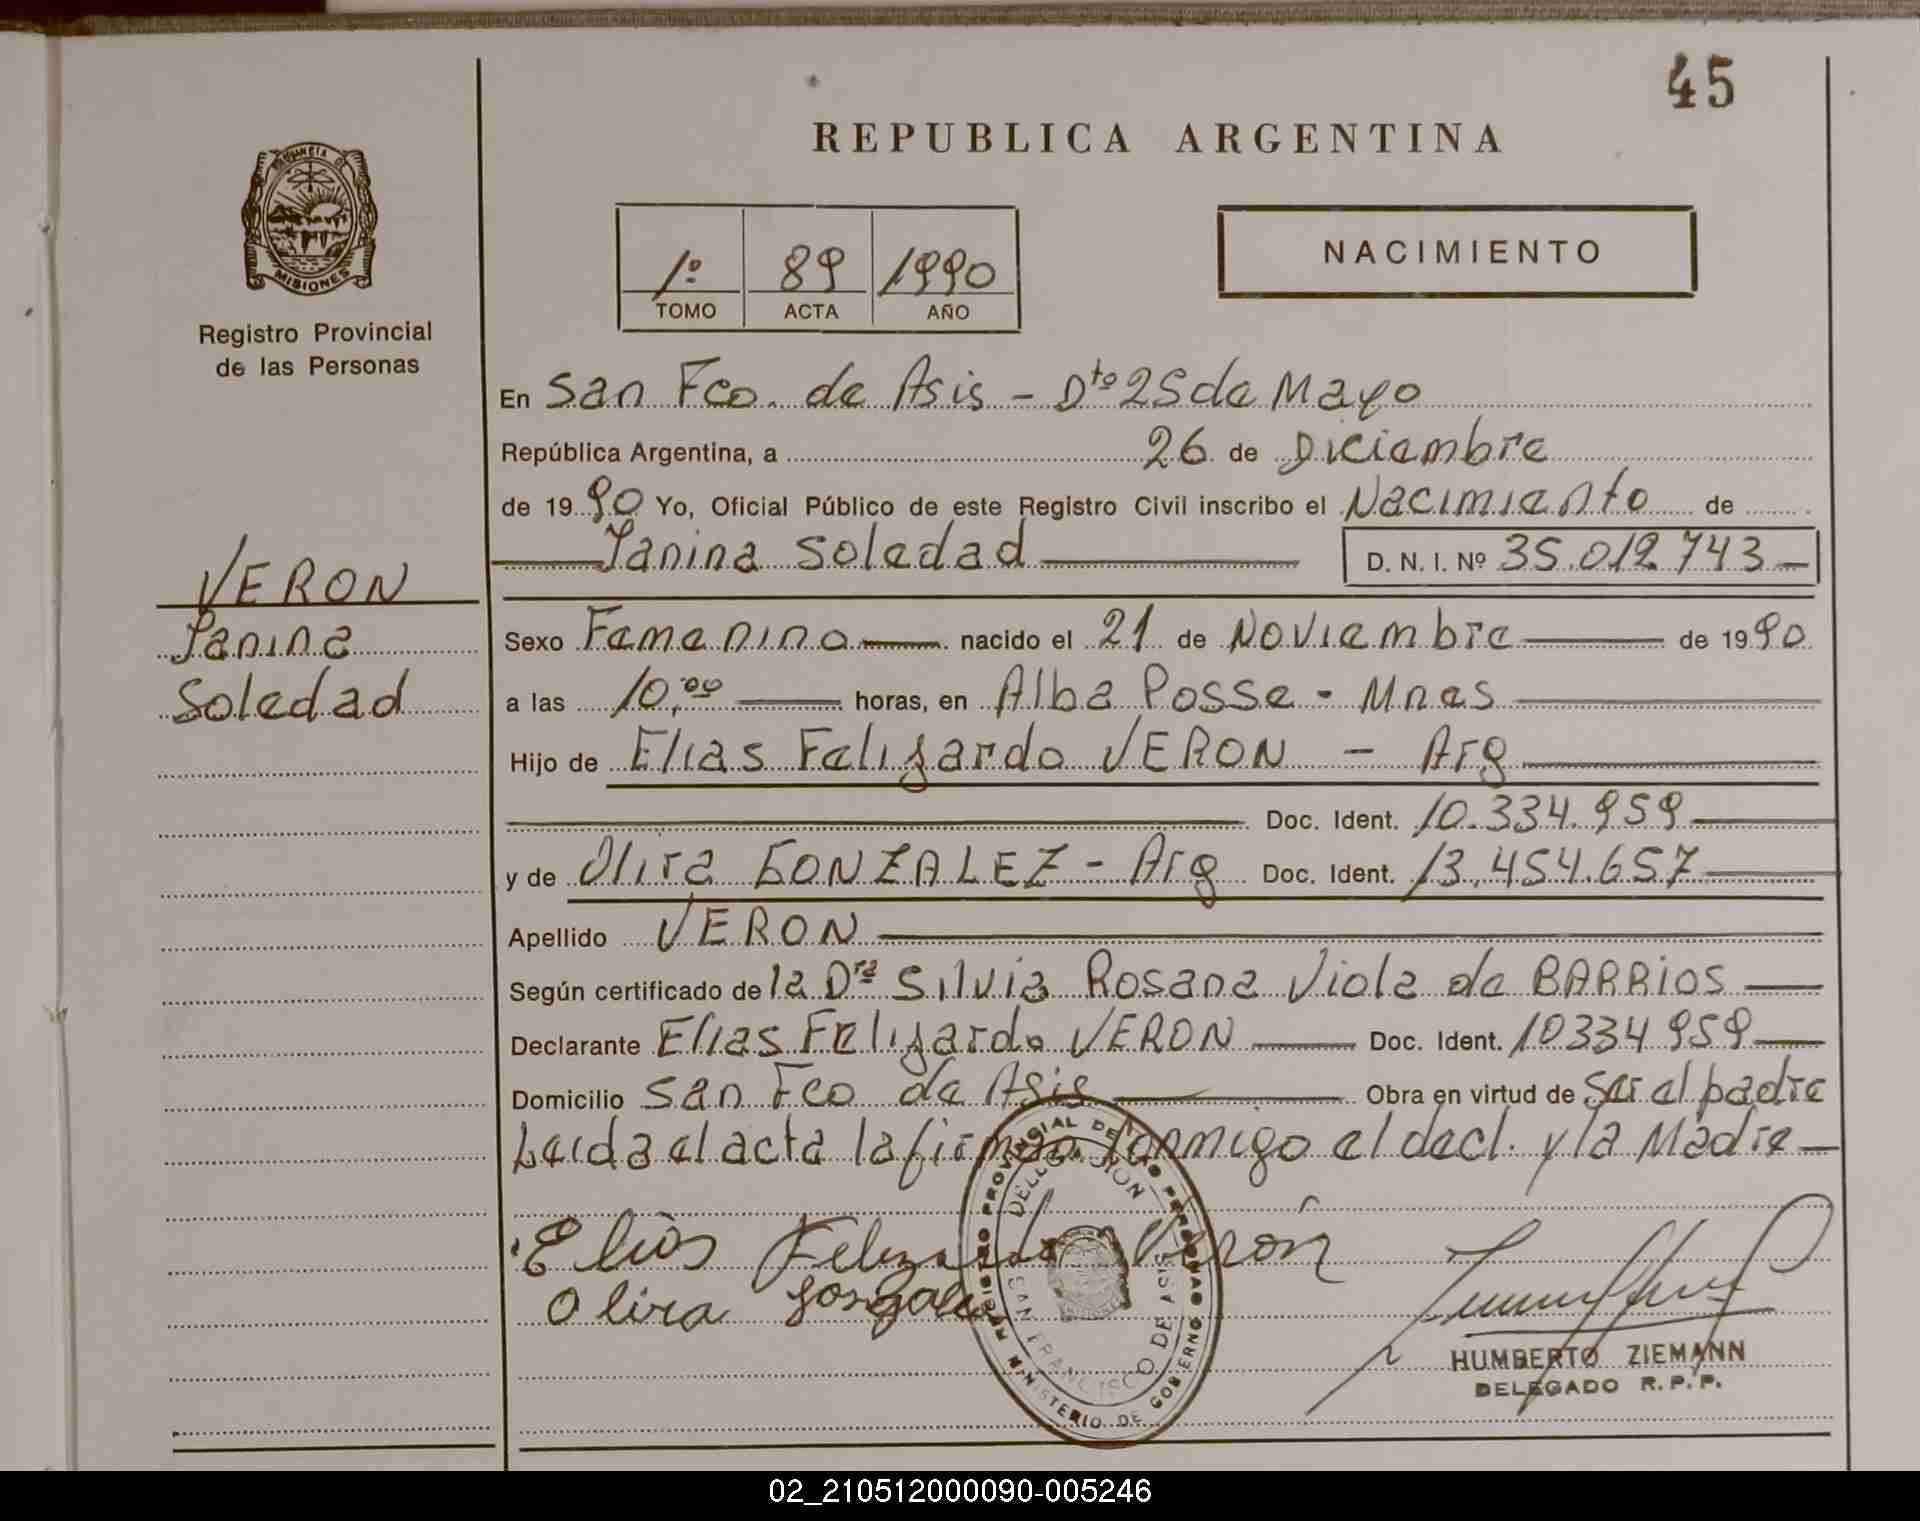 45
REPUBLICA ARGENTINA
PROVINCIA DE
MISIONES
Registro Provincial
de las Personas
1º 89 1990
TOMO ACTA AÑO
NACIMIENTO
En San Fco. de Asis - Dto 25 de Mayo
República Argentina, a 26 de Diciembre
de 1990 Yo, Oficial Público de este Registro Civil inscribo el Nacimiento de
Yanina Soledad D. N. I. Nº 35.012.743
VERON
Yanina
Soledad
Sexo Femenino nacido el 21 de Noviembre de 1990
a las 10,00 horas, en Alba Posse - Mnes
Hijo de Elias Felizardo VERON - Arg
Doc. Ident. 10.334.959
y de Olira GONZALEZ - Arg Doc. Ident. 13.454.657
Apellido VERON
Según certificado de la Dra Silvia Rosana Viola de BARRIOS
Declarante Elias Felizardo VERON Doc. Ident. 10334959
Domicilio San Fco de Asis Obra en virtud de ser el padre
Leida el acta la firman conmigo el decl. y la Madre
Elias Felizardo Verón
Olira Gonzalez
REGISTRO PROVINCIAL DE LAS PERSONAS
DELEGACION
SAN FRANCISCO DE ASIS
MINISTERIO DE GOBIERNO
HUMBERTO ZIEMANN
DELEGADO R.P.P.
02_210512000090-005246